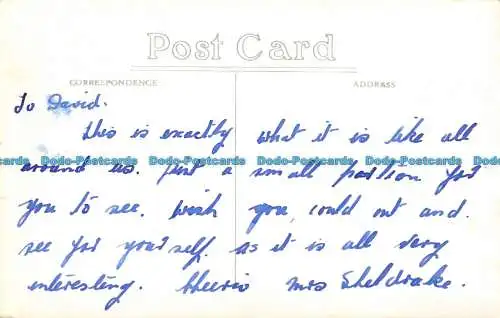 Post Card
CORRESPONDENCE ADDRASS
To David.
this is exactly what it is like all
around us. just a small portion for
you to see. wish you, could out and.
see for yourself. as it is all very
interesting. Cheerio Mrs Sheldrake.
Dodo-Postcards Dodo-Postcards Dodo-Postcards Dodo-Postcards